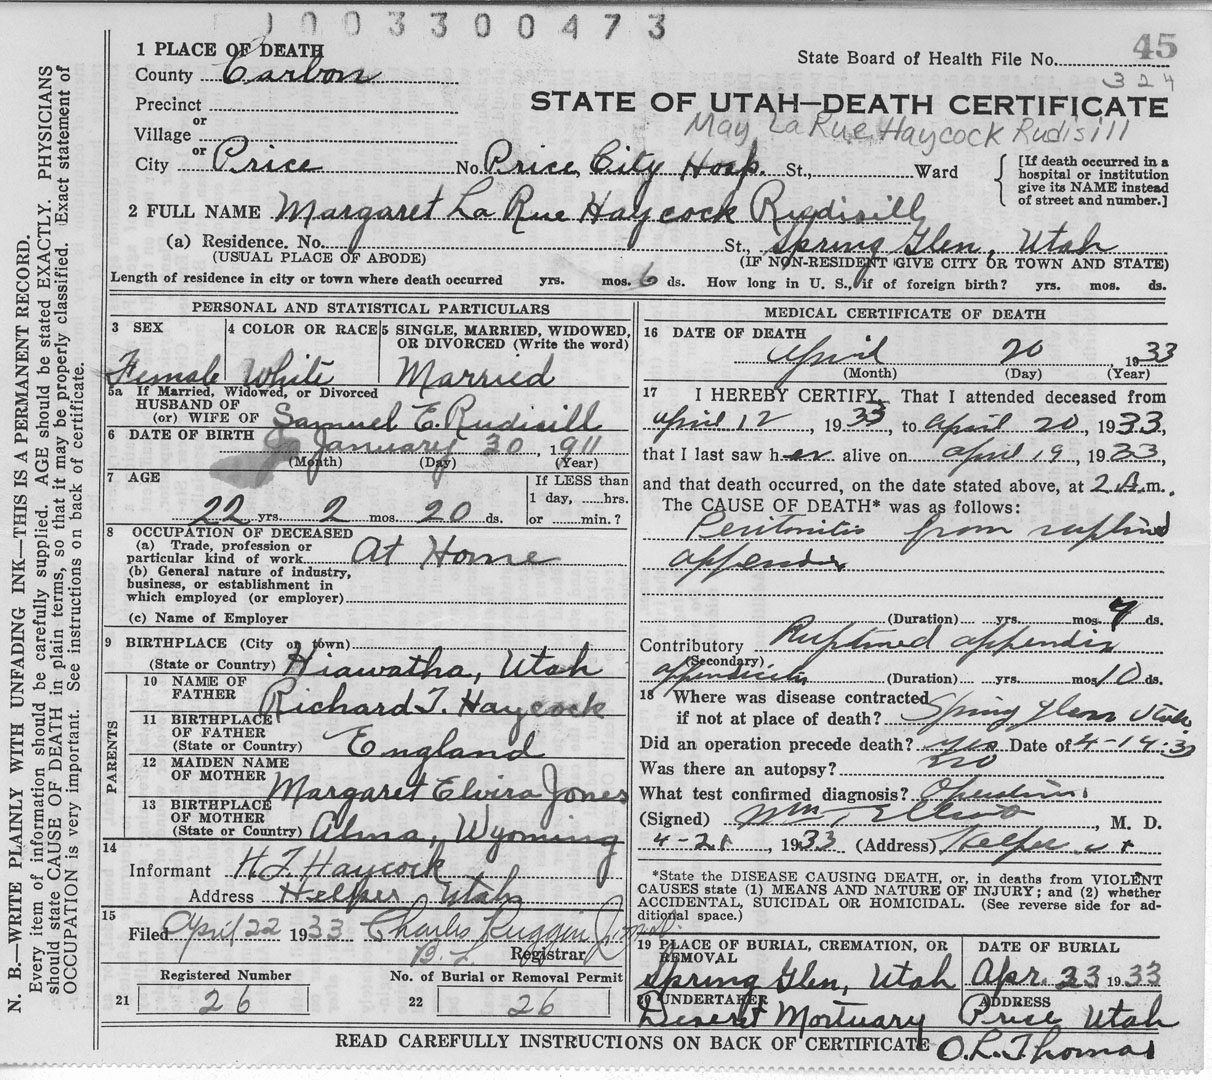 1003300473
45
State Board of Health File No.
324
1 PLACE OF DEATH
County Carbon
STATE OF UTAH—DEATH CERTIFICATE
May La Rue Haycock Rudisill
Precinct
or
Village
or
City Price No. Price City Hosp. St., Ward
[If death occurred in a
hospital or institution
give its NAME instead
of street and number.]
2 FULL NAME Margaret La Rue Haycock Rudisill
(a) Residence. No. St., Spring Glen, Utah
(USUAL PLACE OF ABODE) (IF NON-RESIDENT GIVE CITY OR TOWN AND STATE)
Length of residence in city or town where death occurred yrs. mos. 6 ds. How long in U. S., if of foreign birth? yrs. mos. ds.
N. B.—WRITE PLAINLY WITH UNFADING INK—THIS IS A PERMANENT RECORD.
Every item of information should be carefully supplied. AGE should be stated EXACTLY. PHYSICIANS
should state CAUSE OF DEATH in plain terms, so that it may be properly classified. Exact statement of
OCCUPATION is very important. See instructions on back of certificate.
PERSONAL AND STATISTICAL PARTICULARS
3 SEX 4 COLOR OR RACE 5 SINGLE, MARRIED, WIDOWED,
OR DIVORCED (Write the word)
Female White Married
5a If Married, Widowed, or Divorced
HUSBAND OF
(or) WIFE OF Samuel E. Rudisill
6 DATE OF BIRTH January 30, 1911
(Month) (Day) (Year)
7 AGE If LESS than
1 day, ......hrs.
22 yrs. 2 mos. 20 ds. or ......min.?
8 OCCUPATION OF DECEASED
(a) Trade, profession or
particular kind of work At Home
(b) General nature of industry,
business, or establishment in
which employed (or employer)
(c) Name of Employer
9 BIRTHPLACE (City or town)
(State or Country) Hiawatha, Utah
PARENTS
10 NAME OF
FATHER Richard T. Haycock
11 BIRTHPLACE
OF FATHER
(State or Country) England
12 MAIDEN NAME
OF MOTHER Margaret Elvira Jones
13 BIRTHPLACE
OF MOTHER
(State or Country) Alma, Wyoming
14
Informant H. T. Haycock
Address Helper Utah
15
Filed April 22 1933 Charles Ruggeri
Registrar
Registered Number No. of Burial or Removal Permit
21 26 22 26
MEDICAL CERTIFICATE OF DEATH
16 DATE OF DEATH
April 20 1933
(Month) (Day) (Year)
17 I HEREBY CERTIFY, That I attended deceased from
April 12, 1933, to April 20, 1933,
that I last saw her alive on April 19, 1933,
and that death occurred, on the date stated above, at 2 A.m.
The CAUSE OF DEATH* was as follows:
Peritonitis from ruptured
appendix
(Duration) yrs. mos. 7 ds.
Contributory Ruptured appendix
(Secondary)
appendicitis (Duration) yrs. mos. 10 ds.
18 Where was disease contracted
if not at place of death? Spring Glen Utah
Did an operation precede death? yes Date of 4-14-33
Was there an autopsy? no
What test confirmed diagnosis? Operation
(Signed) Wm. Elliott, M. D.
4-21, 1933 (Address) Helper Ut
*State the DISEASE CAUSING DEATH, or, in deaths from VIOLENT
CAUSES state (1) MEANS AND NATURE OF INJURY; and (2) whether
ACCIDENTAL, SUICIDAL OR HOMICIDAL. (See reverse side for ad-
ditional space.)
19 PLACE OF BURIAL, CREMATION, OR
REMOVAL DATE OF BURIAL
Spring Glen, Utah Apr. 23 1933
20 UNDERTAKER ADDRESS
Deseret Mortuary Price Utah
O. L. Thomas
READ CAREFULLY INSTRUCTIONS ON BACK OF CERTIFICATE